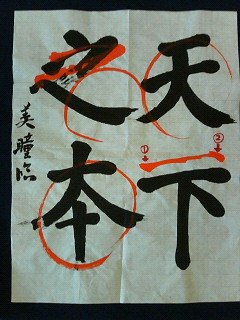 天下
之本
美瞳臨
① ②